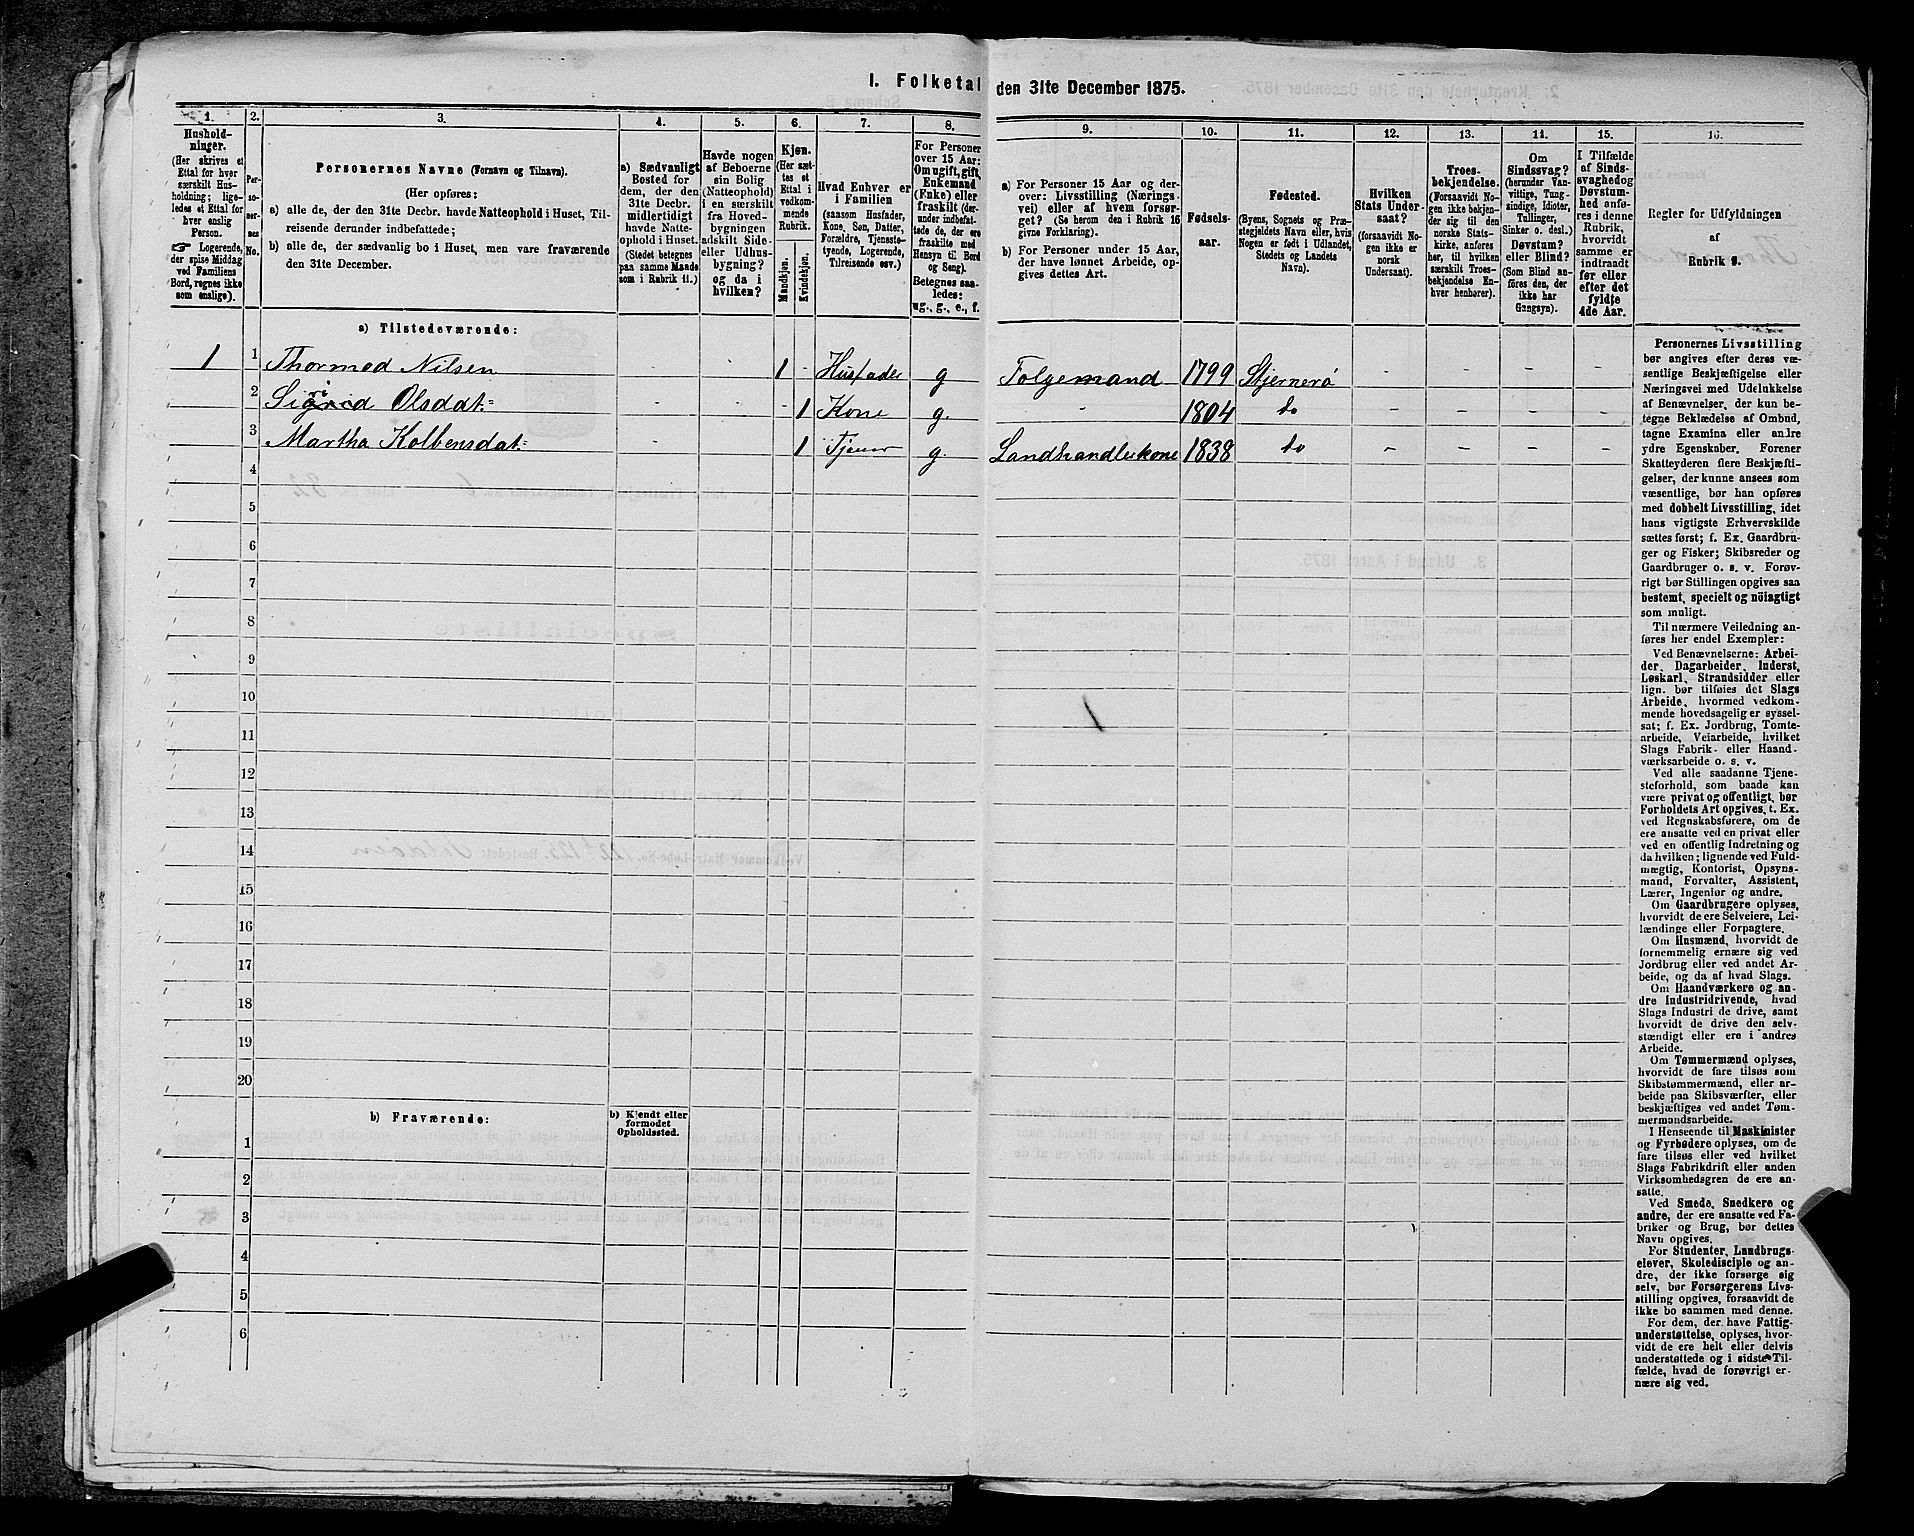 I. Folketal den 31te December 1875.
1. 2. 3. 4. 5. 6. 7. 8. 9. 10. 11. 12. 13. 14. 15. 16.
Hushold-
ninger.
(Her skrives et
Ettal for hver
særskilt Hus-
holdning; lige-
ledes et Ettal for
hver enslig
Person.
☞ Logerende,
der spise Middag
ved Familiens
Bord, regnes ikke
som enslige).
Per-
so-
ner-
nes
No.
Personernes Navne (Fornavn og Tilnavn).
(Her opføres:
a) alle de, der den 31te Decbr. havde Natteophold i Huset, Til-
reisende derunder indbefattede;
b) alle de, der sædvanlig bo i Huset, men vare fraværende
den 31te December.
a) Sædvanligt
Bosted for
dem, der den
31te Decbr.
midlertidigt
havde Natte-
ophold i Huset.
(Stedet betegnes
paa samme Maade
som i Rubrik 11.)
Havde nogen
af Beboerne
sin Bolig
(Natteophold)
i en særskilt
fra Hoved-
bygningen
adskilt Side-
eller Udhus-
bygning?
og da i
hvilken?
Kjøn.
(Her sæt-
tes et
Ettal i
vedkom-
mende
Rubrik.
Mandkjøn.
Kvindekjøn.
Hvad Enhver er
i Familien
(saasom Husfader,
Kone, Søn, Datter,
Forældre, Tjeneste-
tyende, Logerende,
Tilreisende osv.)
For Personer
over 15 Aar:
Om ugift, gift,
Enkemand
(Enke) eller
fraskilt (der-
under indbefat-
tede de, der ere
fraskilte med
Hensyn til Bord
og Seng).
Betegnes saa-
ledes:
ug., g., e., f.
a) For Personer 15 Aar og der-
over: Livsstilling (Nærings-
vei) eller af hvem forsør-
get? (Se herom den i Rubrik 16
givne Forklaring).
b) For Personer under 15 Aar,
der have lønnet Arbeide, op-
gives dettes Art.
Fødsels-
aar.
Fødested.
(Byens, Sognets og Præ-
stegjeldets Navn eller, hvis
Nogen er født i Udlandet,
Stedets og Landets
Navn).
Hvilken
Stats Under-
saat?
(forsaavidt No-
gen ikke er
norsk
Undersaat).
Troes-
bekjendelse.
(Forsaavidt No-
gen ikke bekjen-
der sig til den
norske Stats-
kirke, anføres
her, til hvilken
særskilt Troes-
bekjendelse En-
hver henhører).
Om
Sindssvag?
(herunder Van-
vittige, Tung-
sindige, Idioter,
Tullinger,
Sinker o. desl.)
Døvstum?
eller Blind?
(Som Blind an-
føres den, der
ikke har
Gangsyn).
I Tilfælde
af Sinds-
svaghed og
Døvstum-
hed anfø-
res i denne
Rubrik,
hvorvidt
samme er
indtraadt
før eller
efter det
fyldte
4de Aar.
Regler for Udfyldningen
af
Rubrik 9.
a) Tilstedeværende:
1 1 Thormod Nilsen - - 1 - Husfader g Folgemand 1799 Stjernerö - - - -
2 Sigrid Olsdat= - - 1 Kone g. - 1804 do - - - -
3 Martha Kolbensdat= - - 1 Tjener g. Landhandlerkone 1838 do - - - -
4
5
6
7
8
9
10
11
12
13
14
15
16
17
18
19
20
b) Fraværende:
b) Kjendt eller
formodet
Opholdssted.
1
2
3
4
5
6
Personernes Livsstilling
bør angives efter deres væ-
sentlige Beskjæftigelse eller
Næringsvei med Udelukkelse
af Benævnelser, der kun be-
tegne Beklædelse af Ombud,
tagne Examina eller andre
ydre Egenskaber. Forener
Skatteyderen flere Beskjæfti-
gelser, der kunne ansees som
væsentlige, bør han opføres
med dobbelt Livsstilling, idet
hans vigtigste Erhvervskilde
sættes først; f. Ex. Gaardbru-
ger og Fisker; Skibsreder og
Gaardbruger o. s. v. Forøv-
rigt bør Stillingen opgives saa
bestemt, specielt og nöiagtigt
som muligt.
Til nærmere Veiledning an-
føres her endel Exempler:
Ved Benævnelserne: Arbei-
der, Dagarbeider, Inderst,
Løskarl, Strandsidder eller
lign. bør tilføies det Slags
Arbeide, hvormed vedkom-
mende hovedsagelig er syssel-
sat; f. Ex. Jordbrug, Tomte-
arbeide, Veiarbeide, hvilket
Slags Fabrik- eller Haand-
værksarbeide o. s. v.
Ved alle saadanne Tjene-
steforhold, som baade kan
være privat og offentligt, bør
Forholdets Art opgives, t. Ex.
ved Regnskabsførere, om de
ere ansatte ved en privat eller
ved en offentlig Indretning og
da hvilken; lignende ved Fuld-
mægtig, Kontorist, Opsyns-
mand, Forvalter, Assistent,
Lærer, Ingeniør og andre.
Om Gaardbrugere oplyses,
hvorvidt de ere Selveiere, Lei-
lændinge eller Forpagtere.
Om Husmænd, hvorvidt de
fornemmelig ernære sig ved
Jordbrug eller ved andet Ar-
beide, og da af hvad Slags.
Om Haandværkere og an-
dre Industridrivende, hvad
Slags Industri de drive, samt
hvorvidt de drive den selv-
stændigt eller ere i andres
Arbeide.
Om Tømmermænd oplyses,
hvorvidt de fare tilsøs som
Skibstømmermænd, eller ar-
beide paa Skibsværfter, eller
beskjæftiges ved andet Tøm-
mermandsarbeide.
I Henseende til Maskinister
og Fyrbødere oplyses, om de
fare tilsøs eller ved hvilket
Slags Fabrikdrift eller anden
Virksomhedsgren de ere an-
satte.
Ved Smede, Snedkere og
andre, der ere ansatte ved Fa-
briker og Brug, bør dettes
Navn opgives.
For Studenter, Landbrugs-
elever, Skoledisciple og an-
dre, der ikke forsørge sig
selv, bør Forsørgerens Livs-
stilling opgives, forsaavidt de
ikke bo sammen med denne.
For dem, der have Fattig-
understøttelse, oplyses, hvor-
vidt de ere helt eller delvis
understøttede og i sidste Til-
fælde, hvad de forøvrigt er-
nære sig ved.